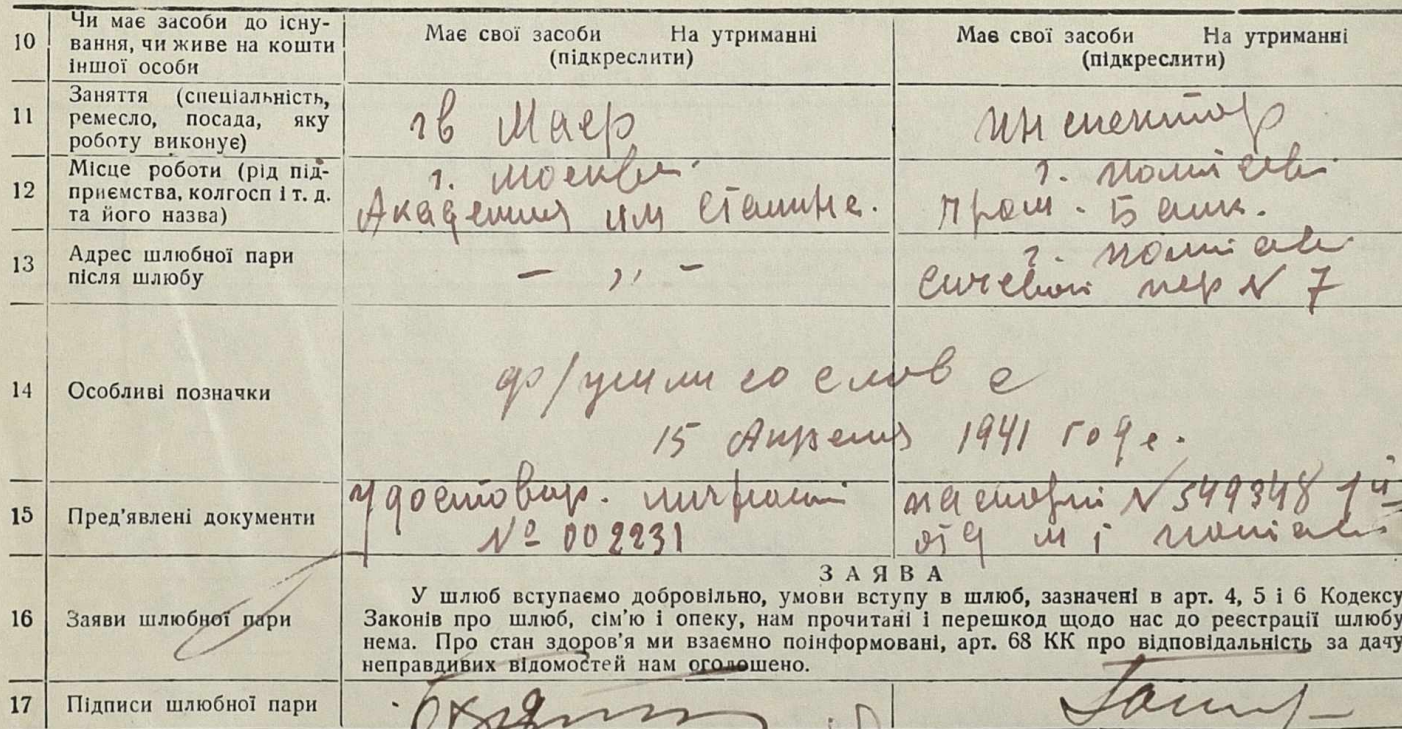 10
Чи має засоби до існу-
вання, чи живе на кошти
іншої особи
Має свої засоби На утриманні
(підкреслити)
Має свої засоби На утриманні
(підкреслити)
11
Заняття (спеціальність,
ремесло, посада, яку
роботу виконує)
Маер
инспектор
12
Місце роботи (рід під-
приємства, колгосп і т. д.
та його назва)
г. Москва
Академия им Сталина.
г. Полтава
Пром. Банк.
13
Адрес шлюбної пари
після шлюбу
– ,, –
г. Полтава
пер № 7
14
Особливі позначки
со слов с
15 Апреля 1941 года.
15
Пред'явлені документи
удостовер. личности
№ 002231
паспорт № 549348 1й
отд м г Полтавы
16
Заяви шлюбної пари
ЗАЯВА
У шлюб вступаємо добровільно, умови вступу в шлюб, зазначені в арт. 4, 5 і 6 Кодексу
Законів про шлюб, сім'ю і опеку, нам прочитані і перешкод щодо нас до реєстрації шлюбу
нема. Про стан здоров'я ми взаємно поінформовані, арт. 68 КК про відповідальність за дачу
неправдивих відомостей нам оголошено.
17
Підписи шлюбної пари